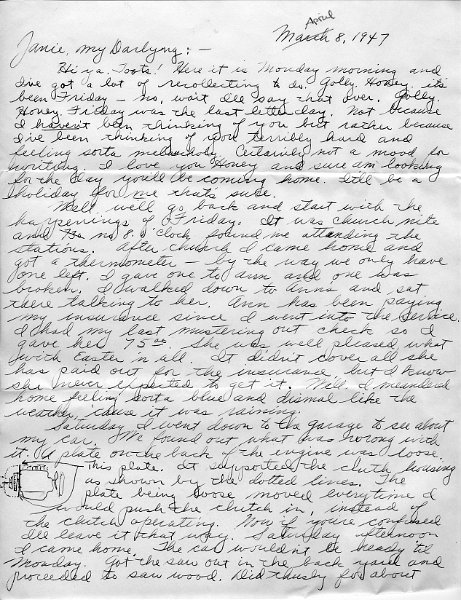 April
March 8, 1947
Janie, my Darlyng: –
Hi ya, Toots! Here it is Monday morning and
I've got a lot of recollecting to do. Golly, Honey, it's
been Friday – no, wait I'll say that over. Golly
Honey, Friday was the last letter day. Not because
I haven't been thinking of you but rather because
I've been thinking of you terribly hard and
feeling sorta Certainly not a mood for
writing. I love you Honey and sure am looking
for the day you'll be coming home. It'll be a
holiday for me that's sure.
Well, we'll go back and start with the
happenings of Friday. It was church nite
and 7:30 o'clock found me attending the
stations. After church I came home and
got a thermometer – by the way we only have
one left. I gave one to Ann and one was
broken. I walked down to Ann's and sat
there talking to her. Ann has been paying
my insurance since I went into the Service.
I had my last mustering out check so I
gave her 75.00. She was well pleased what
with Easter 'n all. It didn't cover all she
has paid out for the insurance, but I know
she never expected to get it. Well, I meandered
home feeling sorta blue and dismal like the
weather, cause it was raining.
Saturday I went down to the garage to see about
my car. We found out what was wrong with
it. A plate on the back of the engine was loose.
This plate. It supported the clutch housing
as shown by the dotted lines. The
plate being loose moved everytime I
would push the clutch in, instead of
the clutch operating. Now if you're confused
I'll leave it that way. Saturday afternoon
I came home. The car wouldn't be ready til
Monday. Got the saw out in the back yard and
proceeded to saw wood. Did thusly for about